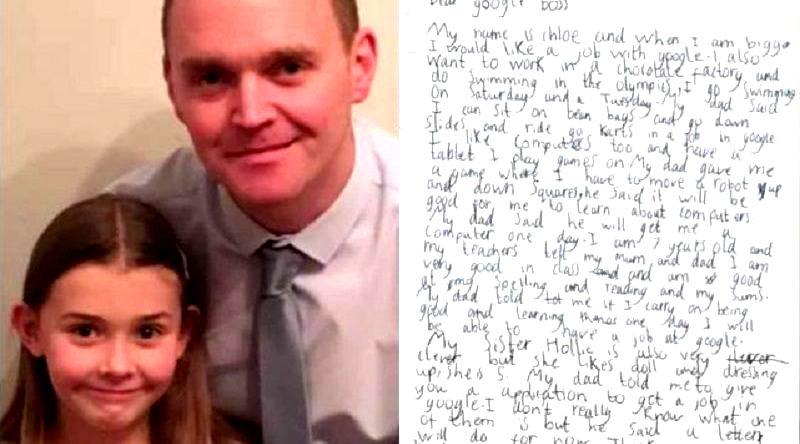 Dear google boss
My name is chloe and when I am bigger
I would like a job with google. I also
want to work in a chocolate factory and
do swimming in the olympics. I go swimming
on Saturday and a Tuesday. My dad said
I can sit on bean bags and go down
slides and ride go karts in a job in google
I like computers too and have a
tablet I play games on. My dad gave me
a game where I have to move a robot up
and down squares, he said it will be
good for me to learn about computers
My dad said he will get me a
computer one day. I am 7 years old and
my teachers tell my mum and dad I am
very good in class and am good
at my spelling and reading and my sums.
My dad told me if I carry on being
good and learning then one day I will
be able to have a job at google.
My sister Hollie is also very clever
but she likes doll and dressing
up, she is 5. My dad told me to give
you a application to get a job in
google. I don't really know what one
of them is but he said a letter
will do for now